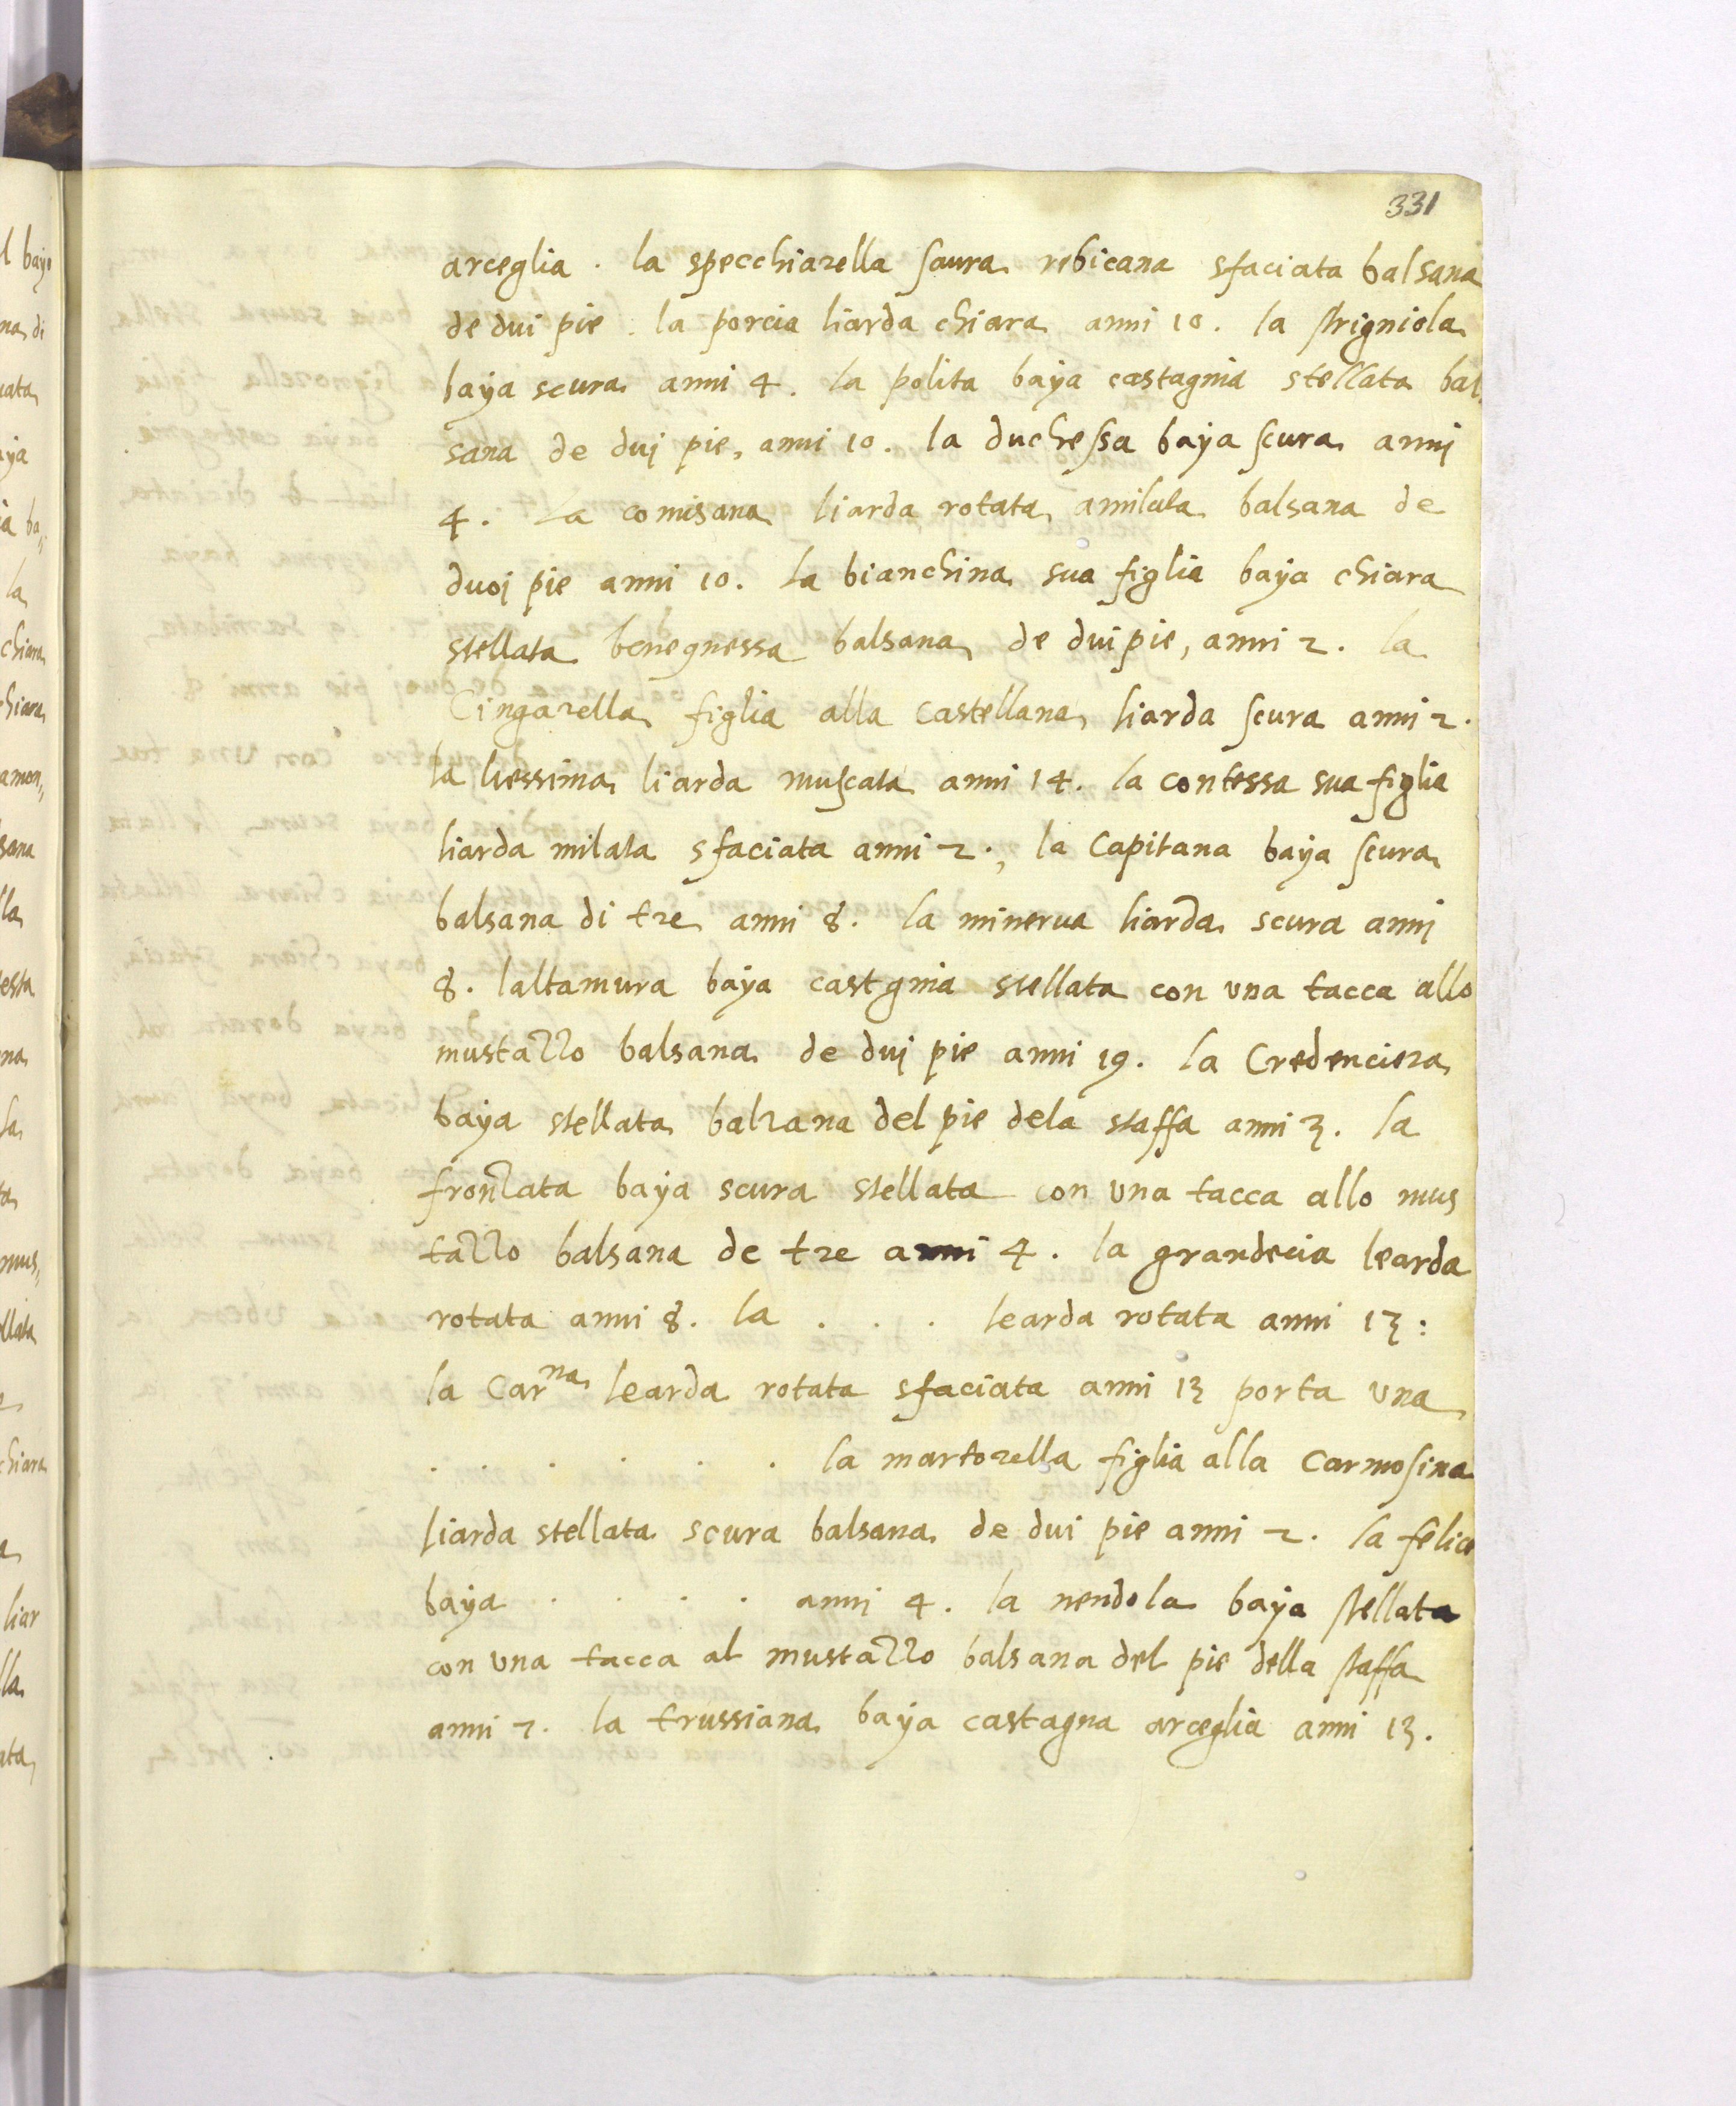 331
arceglia. la specchiarella saura ribicana sfaciata balsana
de dui pie. la porcia liarda chiara anni 10. la strigniola
baya scura anni 4. la polita baya castagnia stellata bal
sana de duj pie, anni 10. la duchessa baya scura annj
4. La comisana liarda rotata amilata balsana de
duoj pie anni 10. La bianchina sua figlia baya chiara
stellata benegnessa balsana de dui pie, anni 2. la
Cingarella figlia alla castellana liarda scura anni 2.
la liessima liarda muscata anni 14. la contessa sua figlia
liarda milata sfaciata anni 2., la Capitana baya scura
balsana di tre anni 8. la minerua liarda scura annj
8. laltamura baya castgnia stellata con una tacca allo
mustazzo balsana de duj pie anni 19. la Credenciera
baya stellata balzana del pie dela staffa anni 3. la
fronzata baya scura stellata con una tacca allo mus
tazzo balsana de tre anni 4. la grandecia learda
rotata anni 8. la . . . learda rotata anni 13:
la Carna learda rotata sfaciata anni 13 porta una
. . . . . . la martorella figlia alla Carmosina
liarda stellata scura balsana de dui pie anni 2. la felice
baya . . . . anni 4. la nendola baya stellata
con una tacca al mustazzo balsana del pie della staffa
anni 2. la trussiana baya castagna arceglia anni 13.